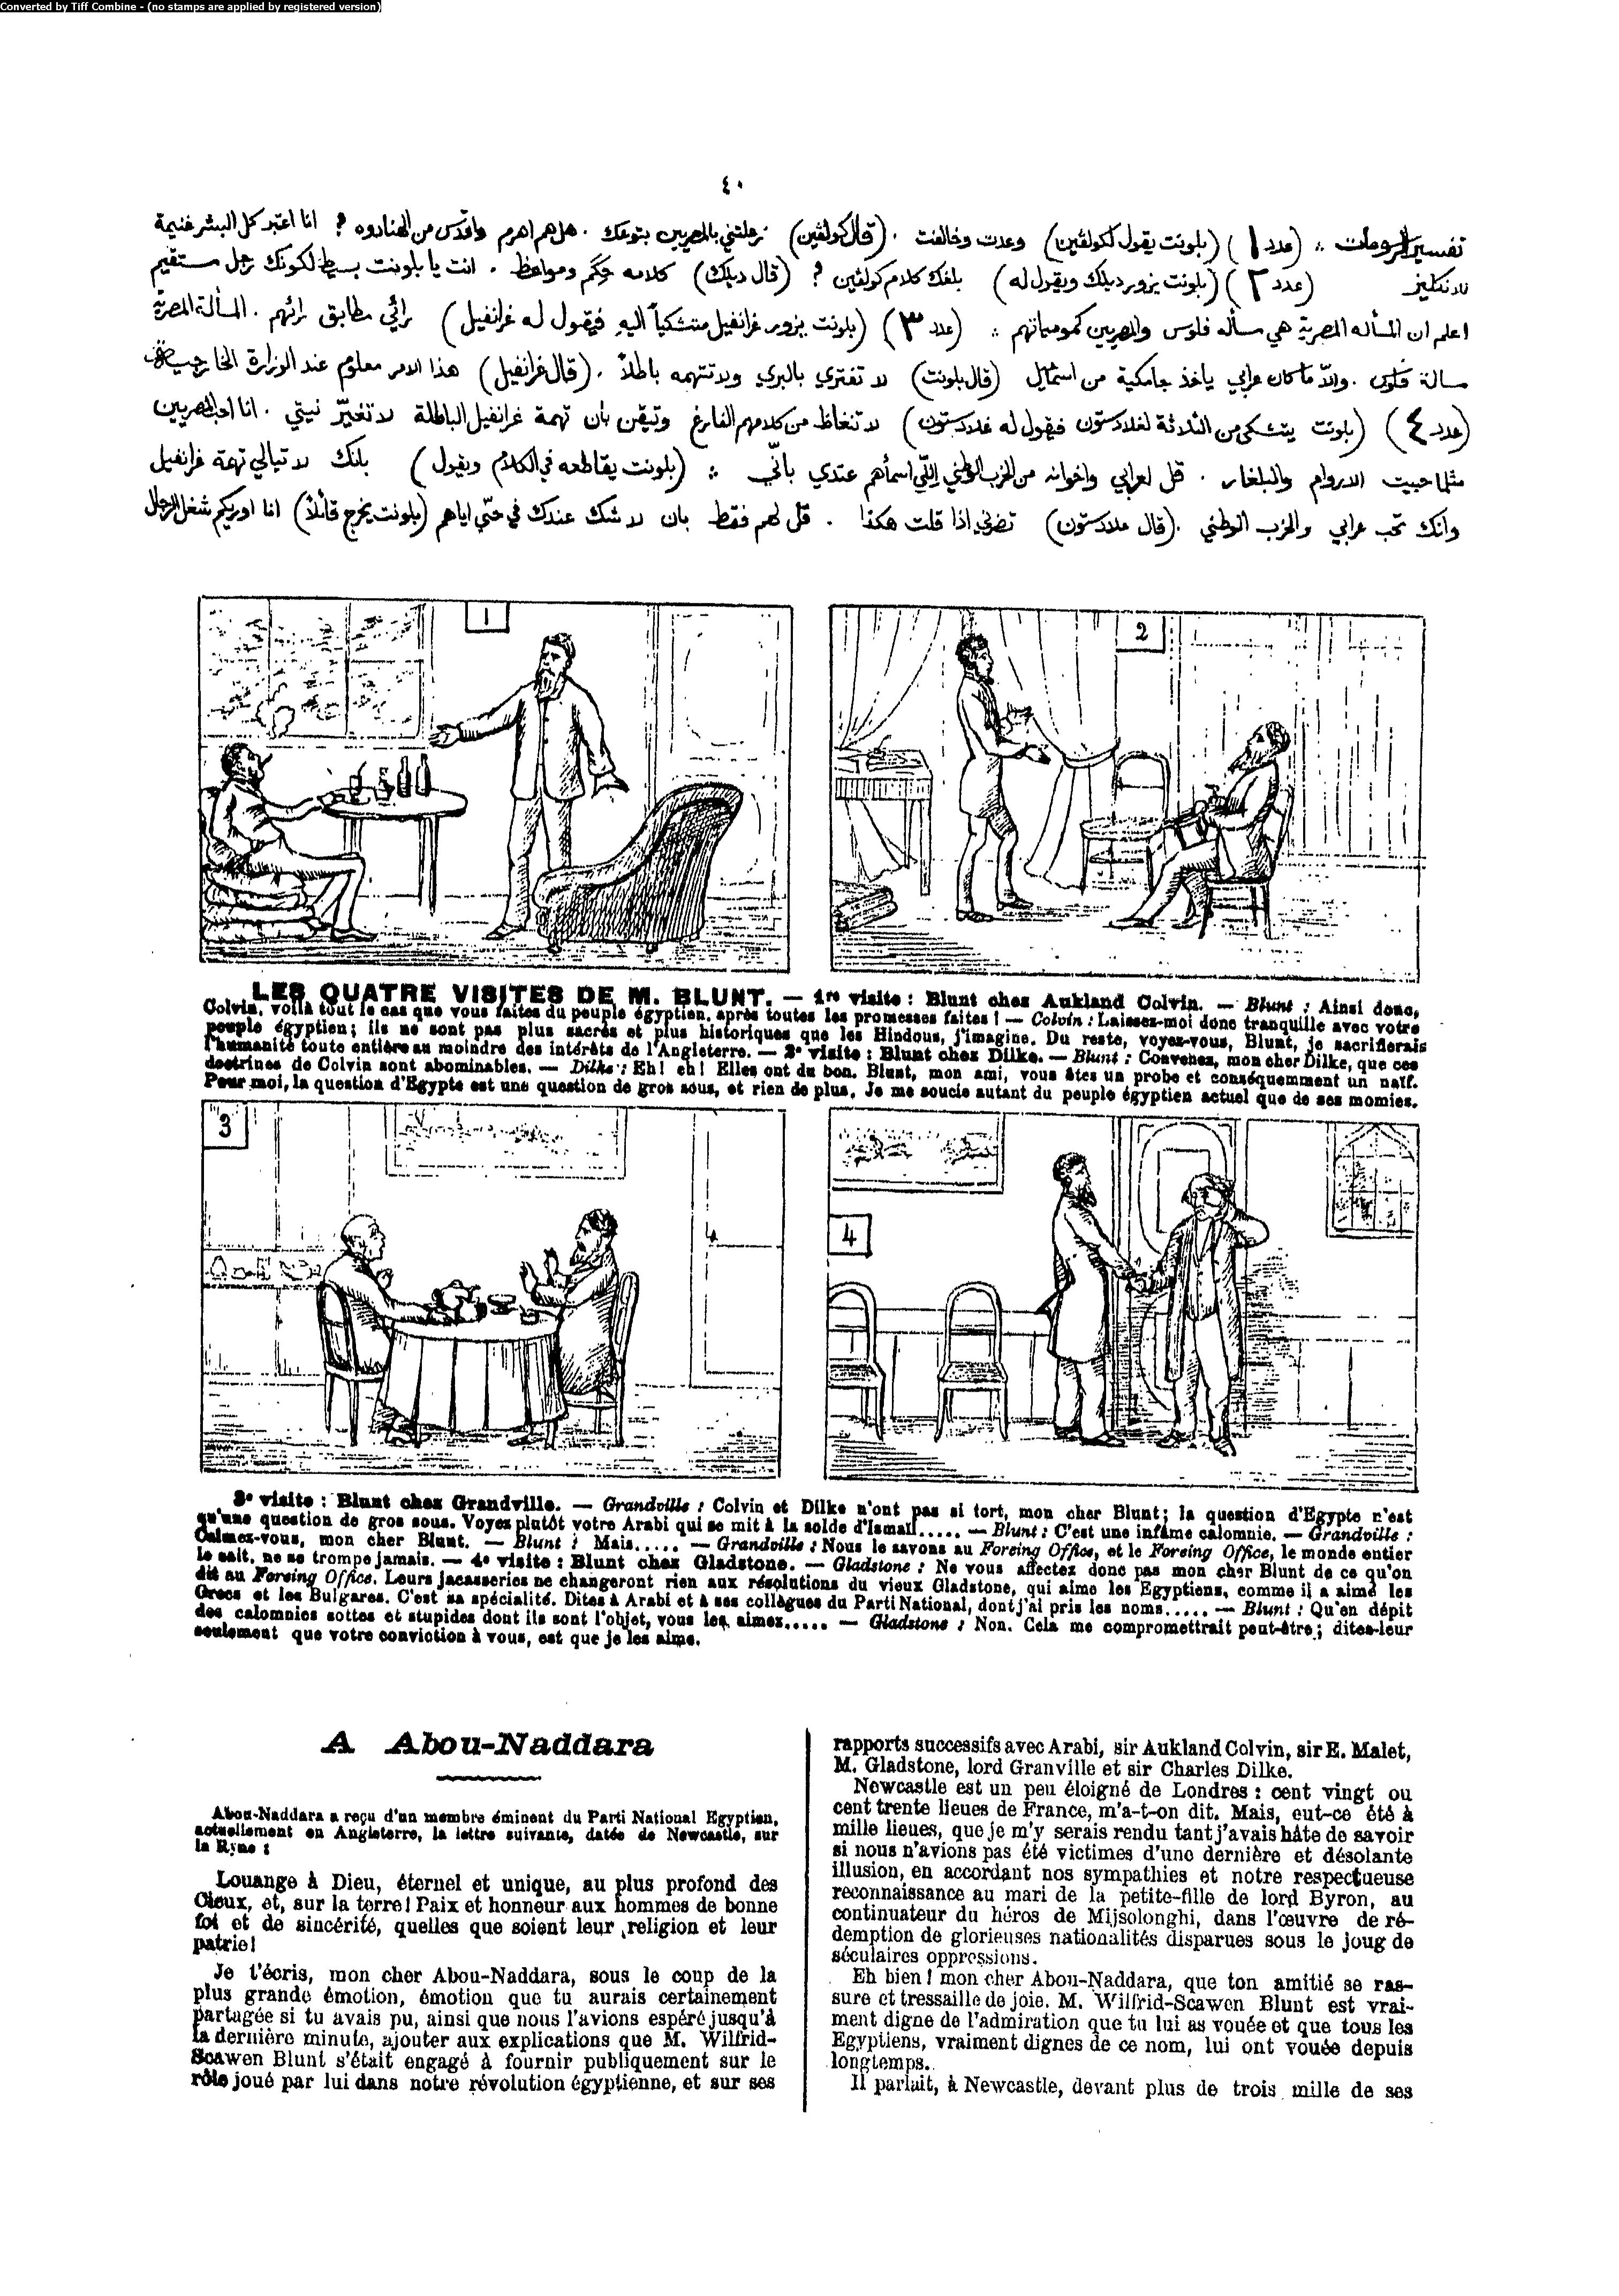 Converted by Tiff Combine - (no stamps are applied by registered version)
٤٠
تفسير الرسومات ؞ (عدد ١) (بلونت يقول لكولفين) وعدت وخالفت . (قال كولفين) زهلتني بالمصريين بتوعك . هل هم اهرم واقدس من الهنادوه ؟ انا اعتبر كل البشر غنيمة
للانكليز (عدد ٢) (بلونت يزور ديلك ويقول له) بلغك كلام كولفين ؟ (قال ديلك) كلامه حكم ومواعظ . انت يا بلونت بسيط لكونك رجل مستقيم
اعلم ان المسأله المصرية هي مسأله فلوس والمصريين كمومياتهم ؞ (عدد ٣) (بلونت يزور غرانفيل متشكياً اليه فيقول له غرانفيل) رائي مطابق لرائهم . المسألة المصرية
مسالة فلوس . والا ما كان عرابي ياخذ جامكية من اسمعيل (قال بلونت) لا تفتري بالبري ولا تتهمه باطلاً . (قال غرانفيل) هذا الامر معلوم عند الوزارة الخارجية
(عدد ٤) (بلونت يتشكى من الثلاثة لغلادستون فيقول له غلادستون) لا تنغاظ من كلامهم الفارغ وتيقن بأن تهمة غرانفيل الباطلة لا تغيّر نيتي . انا احب المصريين
مثلما حبيت الاروام والبلغار . قل لعرابي واخوانه من الحزب الوطني اللي اسمأهم عندي بأنّي ؞ (بلونت يقاطعه في الكلام ويقول) بانك لا تبالي تهمة غرانفيل
وانك تحب عرابي والحزب الوطني . (قال غلادستون) تضرني اذا قلت هكذا . قل لهم فقط بان لا شك عندك في حبّي اياهم (بلونت يخرج قائلاً) انا اوريكم شغل الرجال
1
2
LES QUATRE VISITES DE M. BLUNT. — 1re visite : Blunt chez Aukland Colvin. — Blunt : Ainsi donc,
Colvin, voilà tout le cas que vous faites du peuple égyptien, après toutes les promesses faites ! — Colvin : Laissez-moi donc tranquille avec votre
peuple égyptien ; ils ne sont pas plus sacrés et plus historiques que les Hindous, j'imagine. Du reste, voyez-vous, Blunt, je sacrifierais
l'humanité toute entière au moindre des intérêts de l'Angleterre. — 2e visite : Blunt chez Dilke. — Blunt : Convenez, mon cher Dilke, que ces
doctrines de Colvin sont abominables. — Dilke : Eh ! eh ! Elles ont du bon. Blunt, mon ami, vous êtes un probe et conséquemment un naïf.
Pour moi, la question d'Egypte est une question de gros sous, et rien de plus. Je me soucie autant du peuple égyptien actuel que de ses momies.
3
4
3e visite : Blunt chez Grandville. — Grandville : Colvin et Dilke n'ont pas si tort, mon cher Blunt ; la question d'Egypte n'est
qu'une question de gros sous. Voyez plutôt votre Arabi qui se mit à la solde d'Ismaïl..... — Blunt : C'est une infâme calomnie. — Grandville :
Calmez-vous, mon cher Blunt. — Blunt : Mais..... — Grandville : Nous le savons au Foreing Office, et le Foreing Office, le monde entier
le sait, ne se trompe jamais. — 4e visite : Blunt chez Gladstone. — Gladstone : Ne vous affectez donc pas mon cher Blunt de ce qu'on
dit au Foreing Office. Leurs jacasseries ne changeront rien aux résolutions du vieux Gladstone, qui aime les Egyptiens, comme il a aimé les
Grecs et les Bulgares. C'est sa spécialité. Dites à Arabi et à ses collègues du Parti National, dont j'ai pris les noms..... — Blunt : Qu'en dépit
des calomnies sottes et stupides dont ils sont l'objet, vous les aimez..... — Gladstone : Non. Cela me compromettrait peut-être ; dites-leur
seulement que votre conviction à vous, est que je les aime.
A Abou-Naddara
Abou-Naddara a reçu d'un membre éminent du Parti National Egyptien,
actuellement en Angleterre, la lettre suivante, datée de Newcastle, sur
la Ryne :
Louange à Dieu, éternel et unique, au plus profond des
Cieux, et, sur la terre ! Paix et honneur aux hommes de bonne
foi et de sincérité, quelles que soient leur religion et leur
patrie !
Je t'écris, mon cher Abou-Naddara, sous le coup de la
plus grande émotion, émotion que tu aurais certainement
partagée si tu avais pu, ainsi que nous l'avions espéré jusqu'à
la dernière minute, ajouter aux explications que M. Wilfrid-
Scawen Blunt s'était engagé à fournir publiquement sur le
rôle joué par lui dans notre révolution égyptienne, et sur ses
rapports successifs avec Arabi, sir Aukland Colvin, sir E. Malet,
M. Gladstone, lord Granville et sir Charles Dilke.
Newcastle est un peu éloigné de Londres : cent vingt ou
cent trente lieues de France, m'a-t-on dit. Mais, eut-ce été à
mille lieues, que je m'y serais rendu tant j'avais hâte de savoir
si nous n'avions pas été victimes d'une dernière et désolante
illusion, en accordant nos sympathies et notre respectueuse
reconnaissance au mari de la petite-fille de lord Byron, au
continuateur du héros de Mijsolonghi, dans l'œuvre de ré-
demption de glorieuses nationalités disparues sous le joug de
séculaires oppressions.
Eh bien ! mon cher Abou-Naddara, que ton amitié se ras-
sure et tressaille de joie. M. Wilfrid-Scawen Blunt est vrai-
ment digne de l'admiration que tu lui as vouée et que tous les
Egyptiens, vraiment dignes de ce nom, lui ont vouée depuis
longtemps.
Il parlait, à Newcastle, devant plus de trois mille de ses